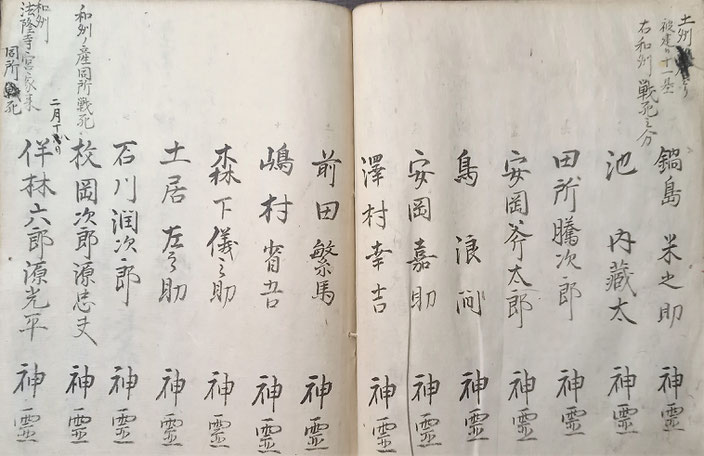 土州■より
被建分十一基
右和州戦死之分
鍋島米之助 神霊
池内藏太 神霊
田所騰次郎 神霊
安岡斧太郎 神霊
鳥浪间 神霊
安岡嘉助 神霊
澤村幸吉 神霊
前田繁馬 神霊
嶋村省吾 神霊
森下儀之助 神霊
土居左之助 神霊
石川潤次郎 神霊
和州ノ産同所戦死
校岡次郎源忠夫 神霊
二月
和州
法隆寺宮家来
同所戦死
伴林六郎源光平 神霊